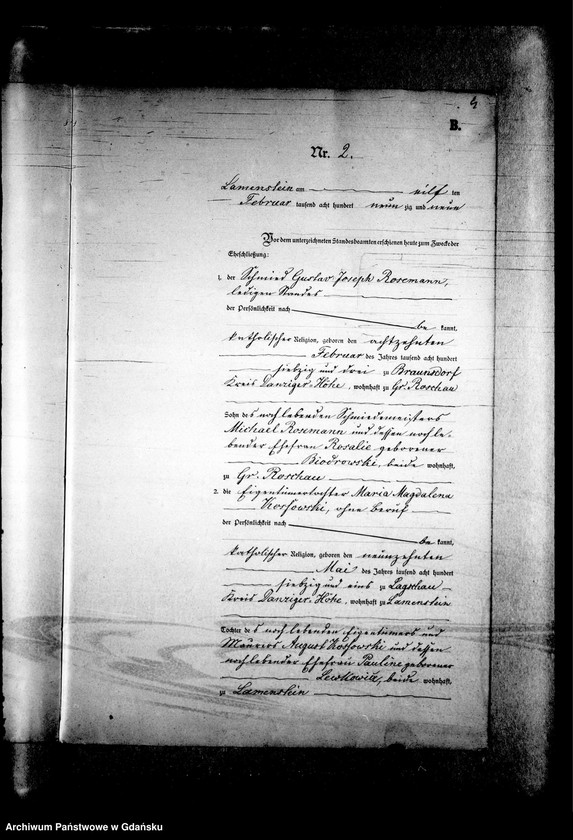 4
B.
Nr. 2.
Lamenstein am eilf ten
Februar tausend acht hundert neun zig und neun
Vor dem unterzeichneten Standesbeamten erschienen heute zum Zwecke der
Eheschließung:
1. der Schmied Gustav Joseph Rosemann,
ledigen Standes
der Persönlichkeit nach
be kannt,
katholischer Religion, geboren den achtzehnten
Februar des Jahres tausend acht hundert
siebzig und drei zu Braunsdorf
Kreis Danziger-Höhe, wohnhaft zu Gr. Roschau
Sohn des noch lebenden Schmiedemeisters
Michael Rosemann und dessen noch le-
bender Ehefrau Rosalie geborener
Biodrowski, beide wohnhaft,
zu Gr. Roschau
2. die Eigentümertochter Maria Magdalena
Kossowski, ohne Beruf
der Persönlichkeit nach
be kannt,
katholischer Religion, geboren den neunzehnten
Mai des Jahres tausend acht hundert
siebzig und eins zu Lagschau
Kreis Danziger-Höhe, wohnhaft zu Lamenstein
Tochter des noch lebenden Eigentümers und
Maurers August Kossowski und dessen
noch lebender Ehefrau Pauline geborener
Lewkowitz, beide wohnhaft,
zu Lamenstein
Archiwum Państwowe w Gdańsku